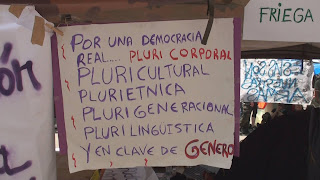 POR UNA DEMOCRACIA
REAL.... PLURI CORPORAL
PLURICULTURAL
PLURIETNICA
PLURI GENERACIONAL
PLURI LINGÜISTICA
Y EN CLAVE DE GENERO
FRIEGA